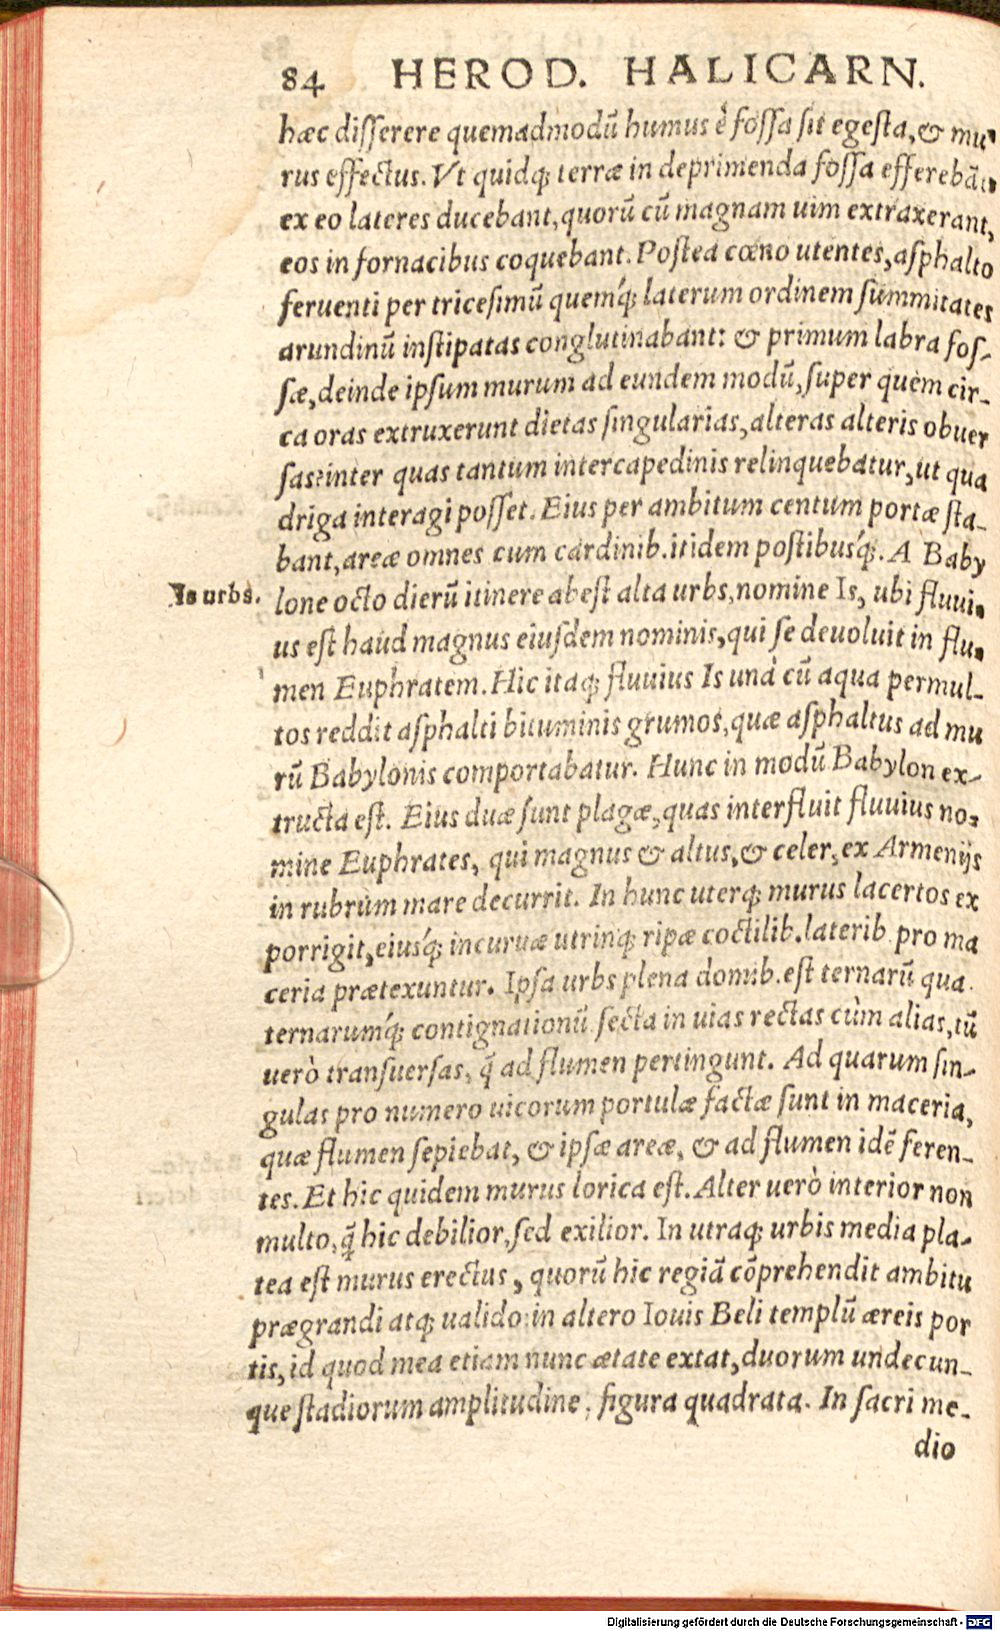 84 HEROD. HALICARN.
hæc disserere quemadmodũ humus è fossa sit egesta, & mu
rus effectus. Vt quidq; terræ in deprimenda fossa efferebãt,
ex eo lateres ducebant, quorũ cũ magnam uim extraxerant,
eos in fornacibus coquebant. Postea cœno utentes, asphalto
feruenti per tricesimũ quemq́; laterum ordinem summitates
arundinũ instipatas conglutinabant: & primum labra fos-
sæ, deinde ipsum murum ad eundem modũ, super quem cir-
ca oras extruxerunt dietas singularias, alteras alteris obuer
sas: inter quas tantum intercapedinis relinquebatur, ut qua
driga interagi posset. Eius per ambitum centum portæ sta-
bant, areæ omnes cum cardinib. itidem postibusq́;. A Baby
Is urbs.
lone octo dierũ itinere abest alta urbs, nomine Is, ubi fluui-
us est haud magnus eiusdem nominis, qui se deuoluit in flu-
men Euphratem. Hic itaq; fluuius Is unà cũ aqua permul-
tos reddit asphalti bituminis grumos, quæ asphaltus ad mu
rũ Babylonis comportabatur. Hunc in modũ Babylon ex-
tructa est. Eius duæ sunt plagæ, quas interfluit fluuius no-
mine Euphrates, qui magnus & altus, & celer, ex Armenijs
in rubrùm mare decurrit. In hunc uterq; murus lacertos ex
porrigit, eiusq́; incuruæ utrinq; ripæ coctilib. laterib. pro ma
ceria prætexuntur. Ipsa urbs plena domib. est ternarũ qua
ternarumq́; contignationũ secta in uias rectas cùm alias, tũ
uerò transuersas, q̃ ad flumen pertingunt. Ad quarum sin-
gulas pro numero uicorum portulæ factæ sunt in maceria,
quæ flumen sepiebat, & ipsæ areæ, & ad flumen idẽ feren-
tes. Et hic quidem murus lorica est. Alter uerò interior non
multo, q̃ hic debilior, sed exilior. In utraq; urbis media pla-
tea est murus erectus, quorũ hic regiã cõprehendit ambitu
prægrandi atq; ualido: in altero Iouis Beli templũ æreis por
tis, id quod mea etiam nunc ætate extat, duorum undecun-
que stadiorum amplitudine, figura quadrata. In sacri me-
dio
Digitalisierung gefördert durch die Deutsche Forschungsgemeinschaft - DFG